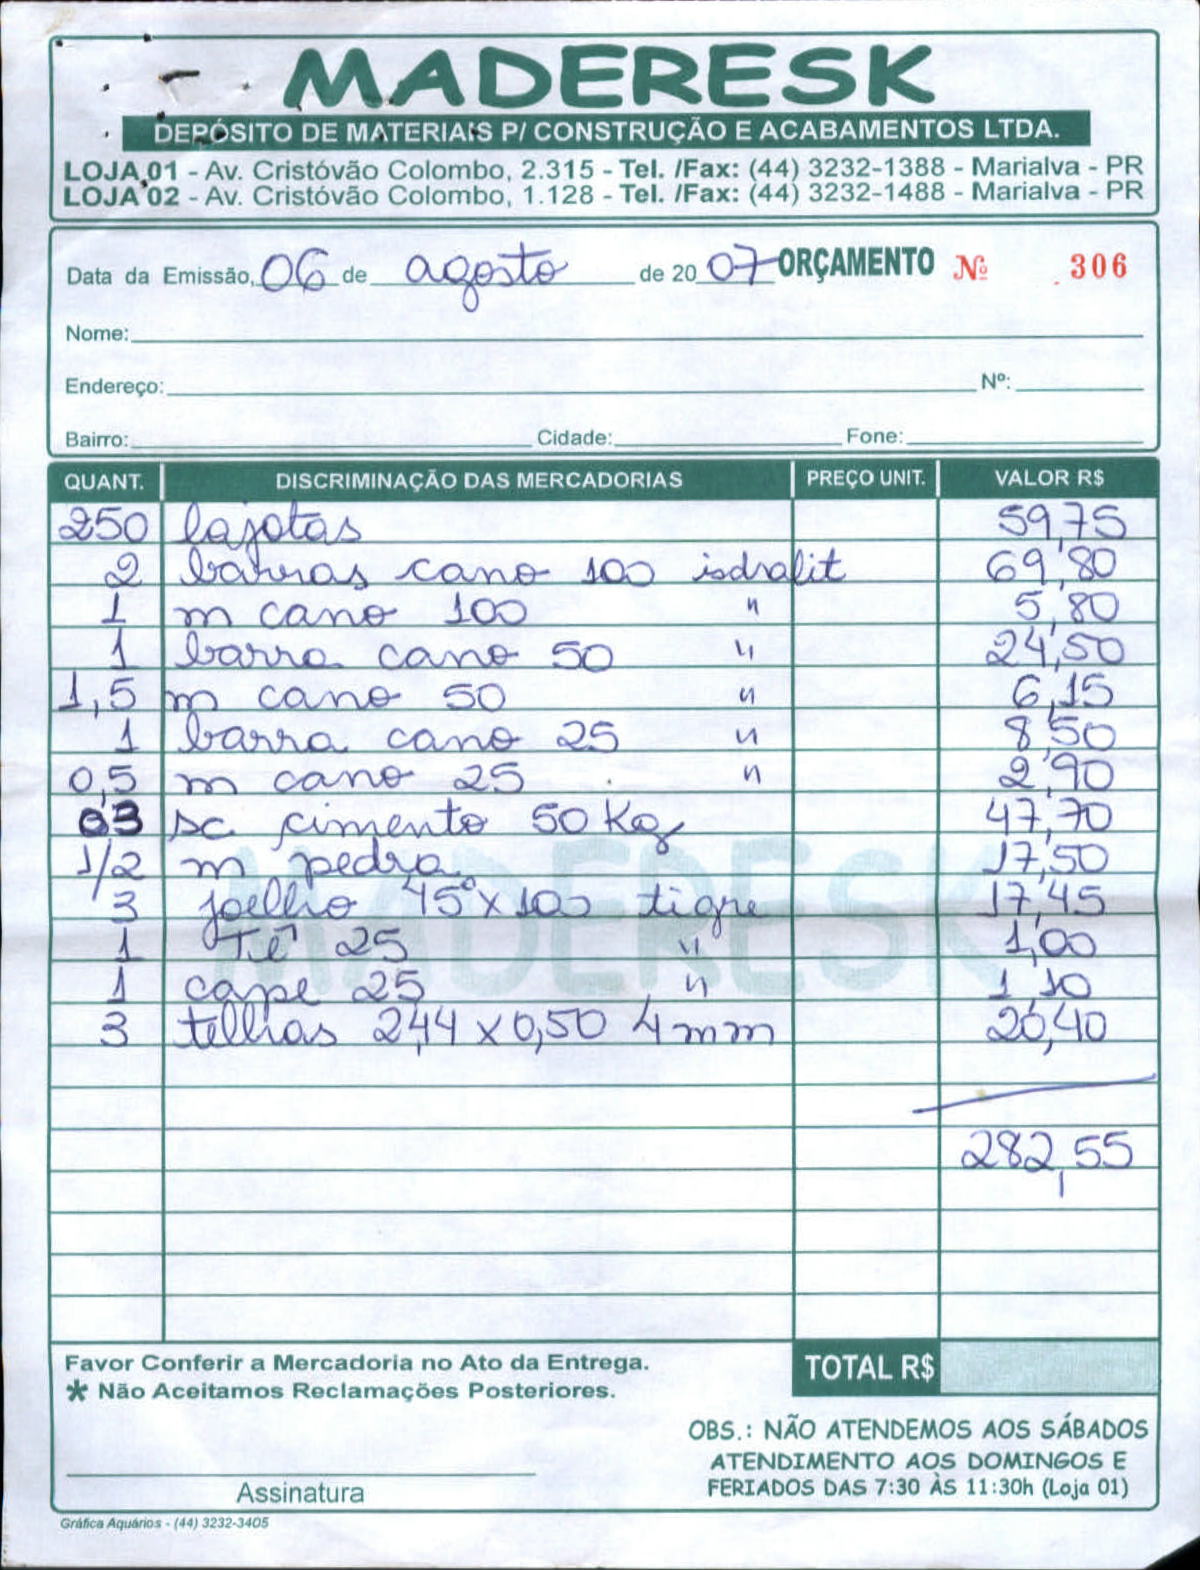 MADERESK
DEPÓSITO DE MATERIAIS P/ CONSTRUÇÃO E ACABAMENTOS LTDA.
LOJA 01 - Av. Cristóvão Colombo, 2.315 - Tel. /Fax: (44) 3232-1388 - Marialva - PR
LOJA 02 - Av. Cristóvão Colombo, 1.128 - Tel. /Fax: (44) 3232-1488 - Marialva - PR
Data da Emissão, 06 de agosto de 20 07 ORÇAMENTO Nº 306
Nome:
Endereço: Nº:
Bairro: Cidade: Fone:
QUANT. DISCRIMINAÇÃO DAS MERCADORIAS PREÇO UNIT. VALOR R$
250 lajotas 59,75
2 barras cano 100 isdralit 69,80
1 m cano 100 " 5,80
1 barra cano 50 " 24,50
1,5 m cano 50 " 6,15
1 barra cano 25 " 8,50
0,5 m cano 25 " 2,90
03 sc cimento 50 Kg 47,70
1/2 m pedra 17,50
3 joelho 45º x 100 tigre 17,45
1 Tê 25 " 1,00
1 cape 25 " 1,10
3 telhas 2,44 x 0,50 4 mm 20,40
282,55
MADERESK
Favor Conferir a Mercadoria no Ato da Entrega. TOTAL R$
* Não Aceitamos Reclamações Posteriores.
OBS.: NÃO ATENDEMOS AOS SÁBADOS
ATENDIMENTO AOS DOMINGOS E
FERIADOS DAS 7:30 ÀS 11:30h (Loja 01)
Assinatura
Gráfica Aquários - (44) 3232-3405